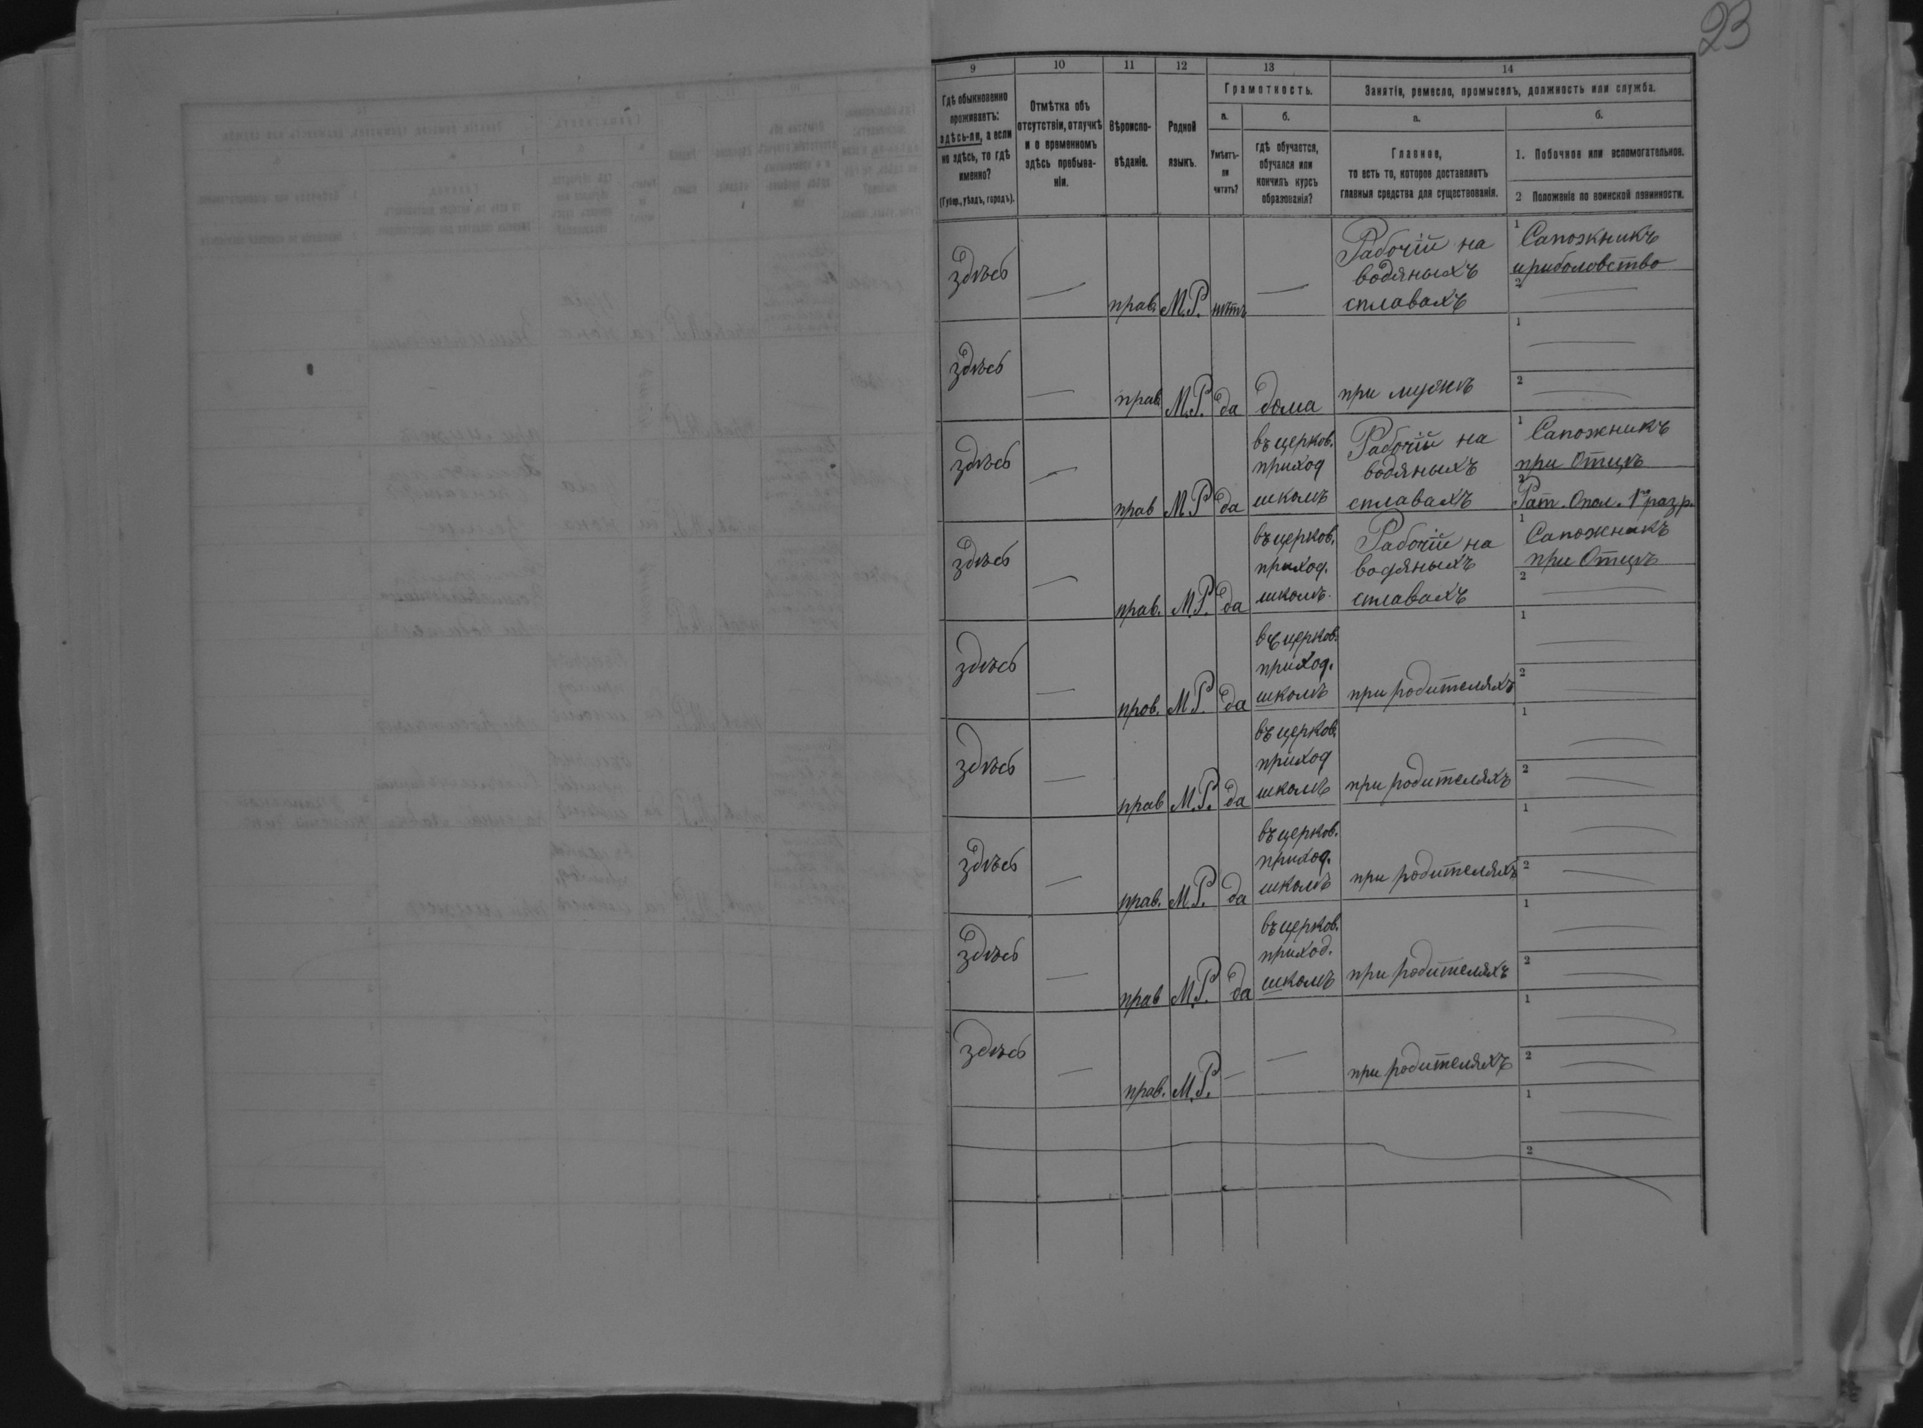 23
9 10 11 12 13 14
Гдѣ обыкновенно проживаетъ: здѣсь-ли, а если не здѣсь, то гдѣ именно? (Губер., уѣздъ, городъ).
Отмѣтка объ отсутствіи, отлучкѣ и о временномъ здѣсь пребываніи.
Вѣроисповѣданіе.
Родной языкъ.
Грамотность.
а.
Умѣетъ-ли читать?
б.
гдѣ обучается, обучался или кончилъ курсъ образованія?
Занятія, ремесло, промыселъ, должность или служба.
а.
Главное, то есть то, которое доставляетъ главныя средства для существованія.
б.
1. Побочное или вспомогательное.
2 Положеніе по воинской повинности.
здѣсь — прав. М.Р. нѣтъ — Рабочій на водяныхъ сплавахъ 1 Сапожникъ и риболовство 2 —
здѣсь — прав. М.Р. да дома при мужѣ 1 — 2 —
здѣсь — прав М Р да въ церков. приход школѣ Рабочій на водяныхъ сплавахъ 1 Сапожникъ при Отцѣ 2 Рат. Опол. 1 разр.
здѣсь — прав. М.Р. да въ церков. приход. школѣ Рабочій на водяныхъ сплавахъ 1 Сапожникъ при Отцѣ 2 —
здѣсь — прав. М Р. да въ церков. приход. школѣ при родителяхъ 1 — 2 —
здѣсь — прав М.Р. да въ церков. приход школѣ при родителяхъ 1 — 2 —
здѣсь — прав. М.Р. да въ церков. приход. школѣ при родителяхъ 1 — 2 —
здѣсь — прав М.Р. да въ церков. приход. школѣ при родителяхъ 1 — 2 —
здѣсь — прав. М.Р. — — при родителяхъ 1 — 2 —
1 — 2